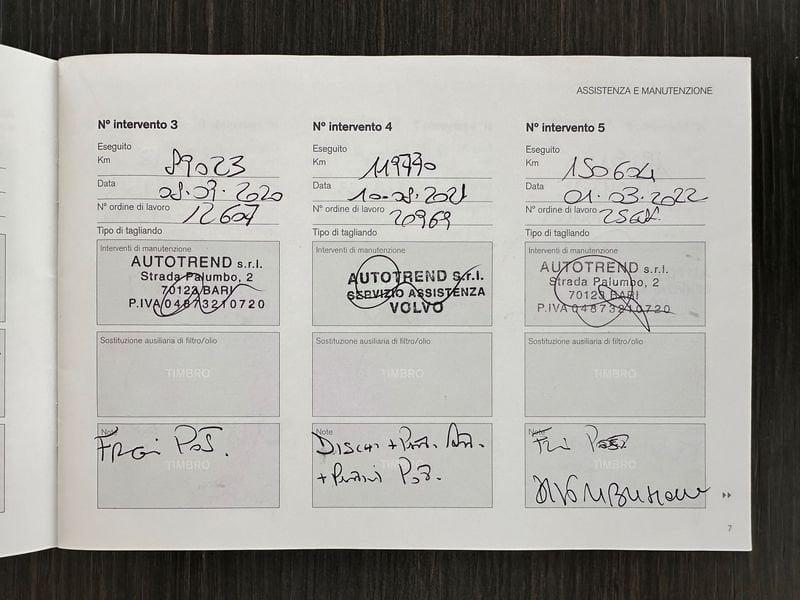 ASSISTENZA E MANUTENZIONE
Nº intervento 3
Eseguito
Km 89023
Data 08.09.2020
Nº ordine di lavoro 12607
Tipo di tagliando
Interventi di manutenzione
AUTOTREND s.r.l.
Strada Palumbo, 2
70123 BARI
P.IVA 04873210720
Sostituzione ausiliaria di filtro/olio
TIMBRO
Note
TIMBRO
Nº intervento 4
Eseguito
Km 119770
Data 10-08-2021
Nº ordine di lavoro 20969
Tipo di tagliando
Interventi di manutenzione
AUTOTREND s.r.l.
SERVIZIO ASSISTENZA
VOLVO
Sostituzione ausiliaria di filtro/olio
TIMBRO
Note
DISCHI +
+ Post.
TIMBRO
Nº intervento 5
Eseguito
Km 150604
Data 01.03.2022
Nº ordine di lavoro
Tipo di tagliando
Interventi di manutenzione
AUTOTREND s.r.l.
Strada Palumbo, 2
70123 BARI
P.IVA 04873210720
Sostituzione ausiliaria di filtro/olio
TIMBRO
Note
TIMBRO
7